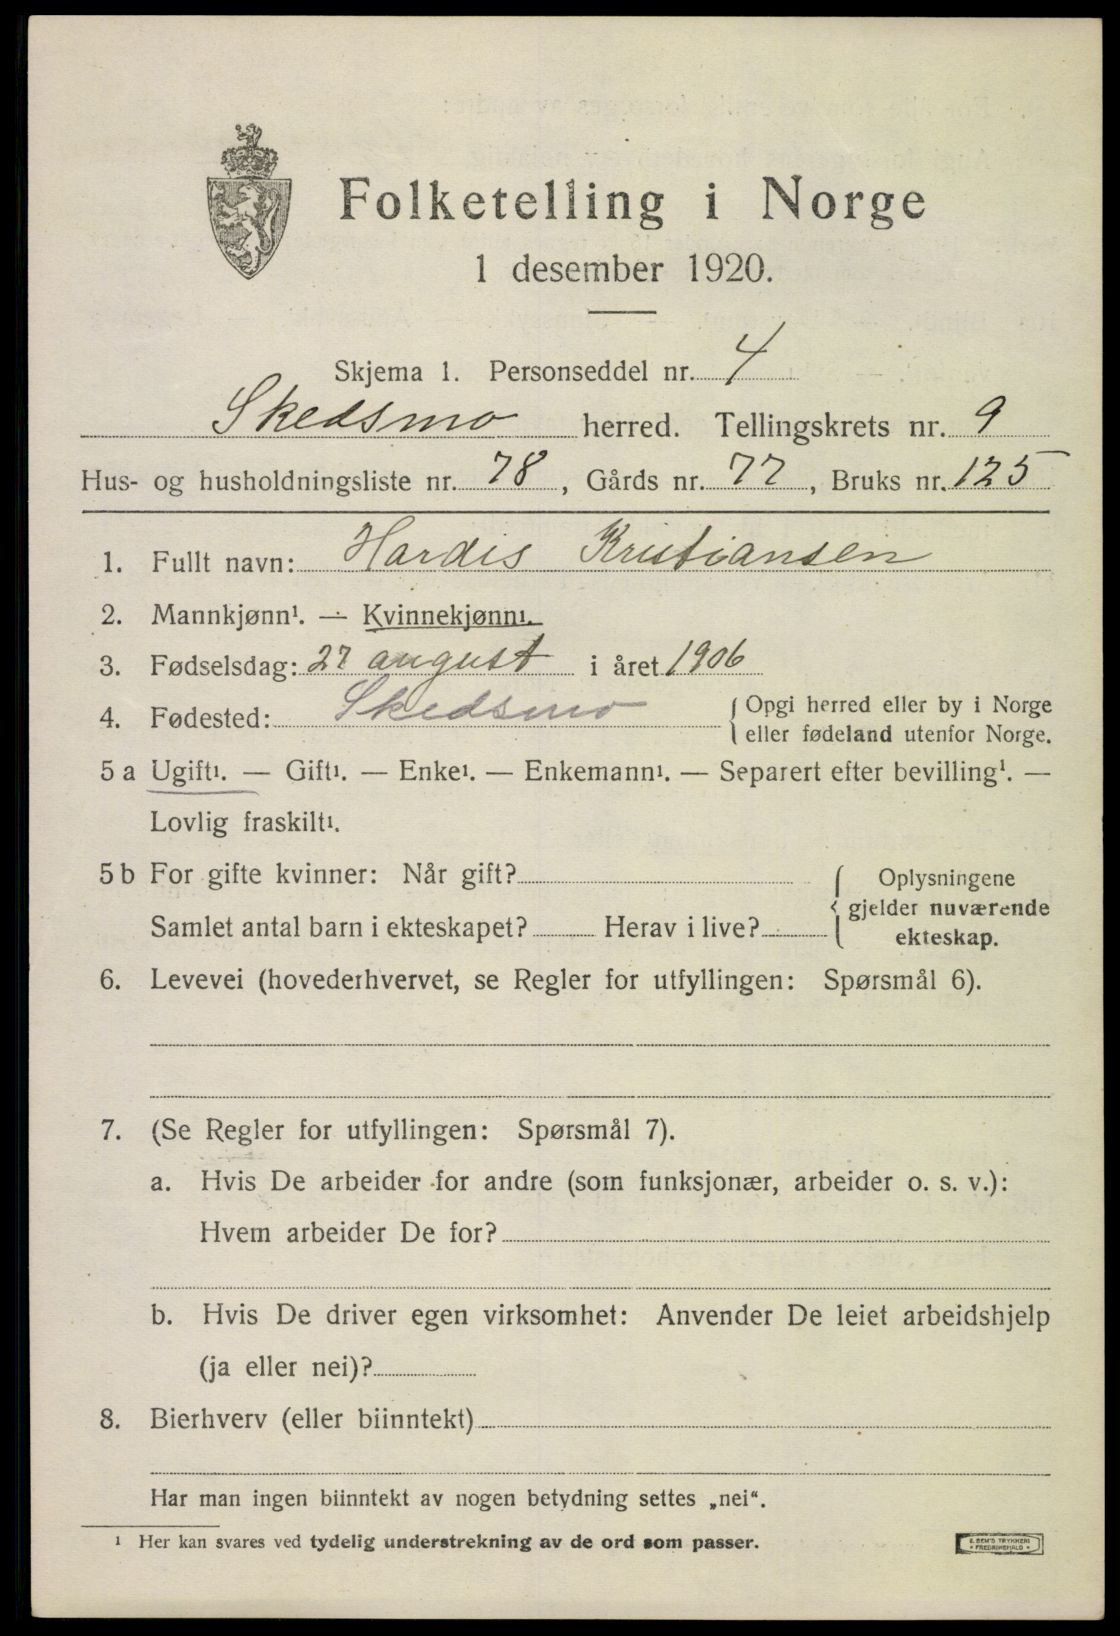 Folketelling i Norge
1 desember 1920.
Skjema 1. Personseddel nr. 4
Skedsmo herred. Tellingskrets nr. 9
Hus- og husholdningsliste nr. 78, Gårds nr. 77, Bruks nr. 125
1. Fullt navn: Hardis Kristiansen
2. Mannkjønn¹. — Kvinnekjønn¹.
3. Fødselsdag: 27 august i året 1906
4. Fødested: Skedsmo { Opgi herred eller by i Norge
eller fødeland utenfor Norge.
5 a Ugift¹. — Gift¹. — Enke¹. — Enkemann¹. — Separert efter bevilling¹. —
Lovlig fraskilt¹.
5 b For gifte kvinner: Når gift? { Oplysningene
Samlet antal barn i ekteskapet? Herav i live? gjelder nuværende
ekteskap.
6. Levevei (hovederhvervet, se Regler for utfyllingen: Spørsmål 6).
7. (Se Regler for utfyllingen: Spørsmål 7).
a. Hvis De arbeider for andre (som funksjonær, arbeider o. s. v.):
Hvem arbeider De for?
b. Hvis De driver egen virksomhet: Anvender De leiet arbeidshjelp
(ja eller nei)?
8. Bierhverv (eller biinntekt)
Har man ingen biinntekt av nogen betydning settes „nei“.
¹ Her kan svares ved tydelig understrekning av de ord som passer.
E. SEM'S TRYKKERI
• FREDRIKSHALD •